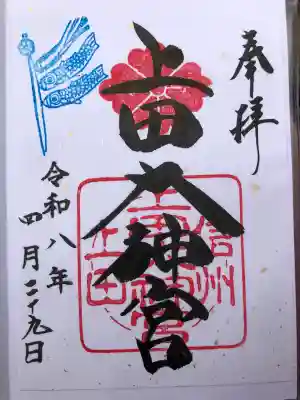 奉拝
上田大神宮
信州
上田
令和八年
四月二十九日